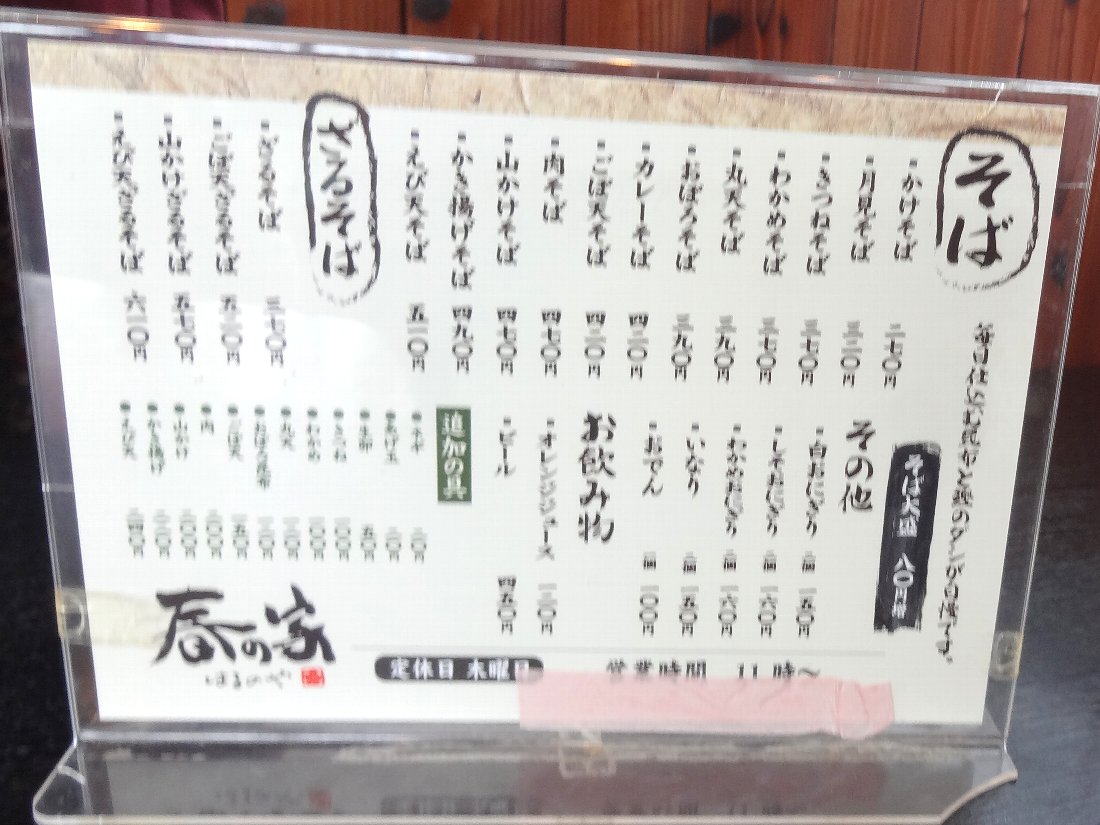 そば
・かけそば 二七〇円
・月見そば 三二〇円
・きつねそば 三七〇円
・わかめそば 三七〇円
・丸天そば 三九〇円
・おぼろそば 三九〇円
・カレーそば 四二〇円
・ごぼ天そば 四二〇円
・肉そば 四七〇円
・山かけそば 四七〇円
・かき揚げそば 四九〇円
・えび天そば 五一〇円
ざるそば
・ざるそば 三七〇円
・ごぼ天ざるそば
・山かけざるそば 五七〇円
・えび天ざるそば 六一〇円
そば大盛 八〇円増
その他
・白おにぎり 二個 一五〇円
・しそおにぎり 二個 一六〇円
・わかめおにぎり 二個 一六〇円
・いなり 二個 一五〇円
・おでん 一個 一〇〇円
お飲み物
・オレンジジュース
・ビール 四五〇円
追加の具
・ネギ
・あげ玉
・生卵 五〇円
・きつね 一〇〇円
・わかめ 一〇〇円
・丸天
・おぼろ昆布
・ごぼ天 一五〇円
・肉 二〇〇円
・山かけ 二〇〇円
・かき揚げ
・えび天 二四〇円
営業時間 11時〜
定休日 木曜日
春の家
はるのや